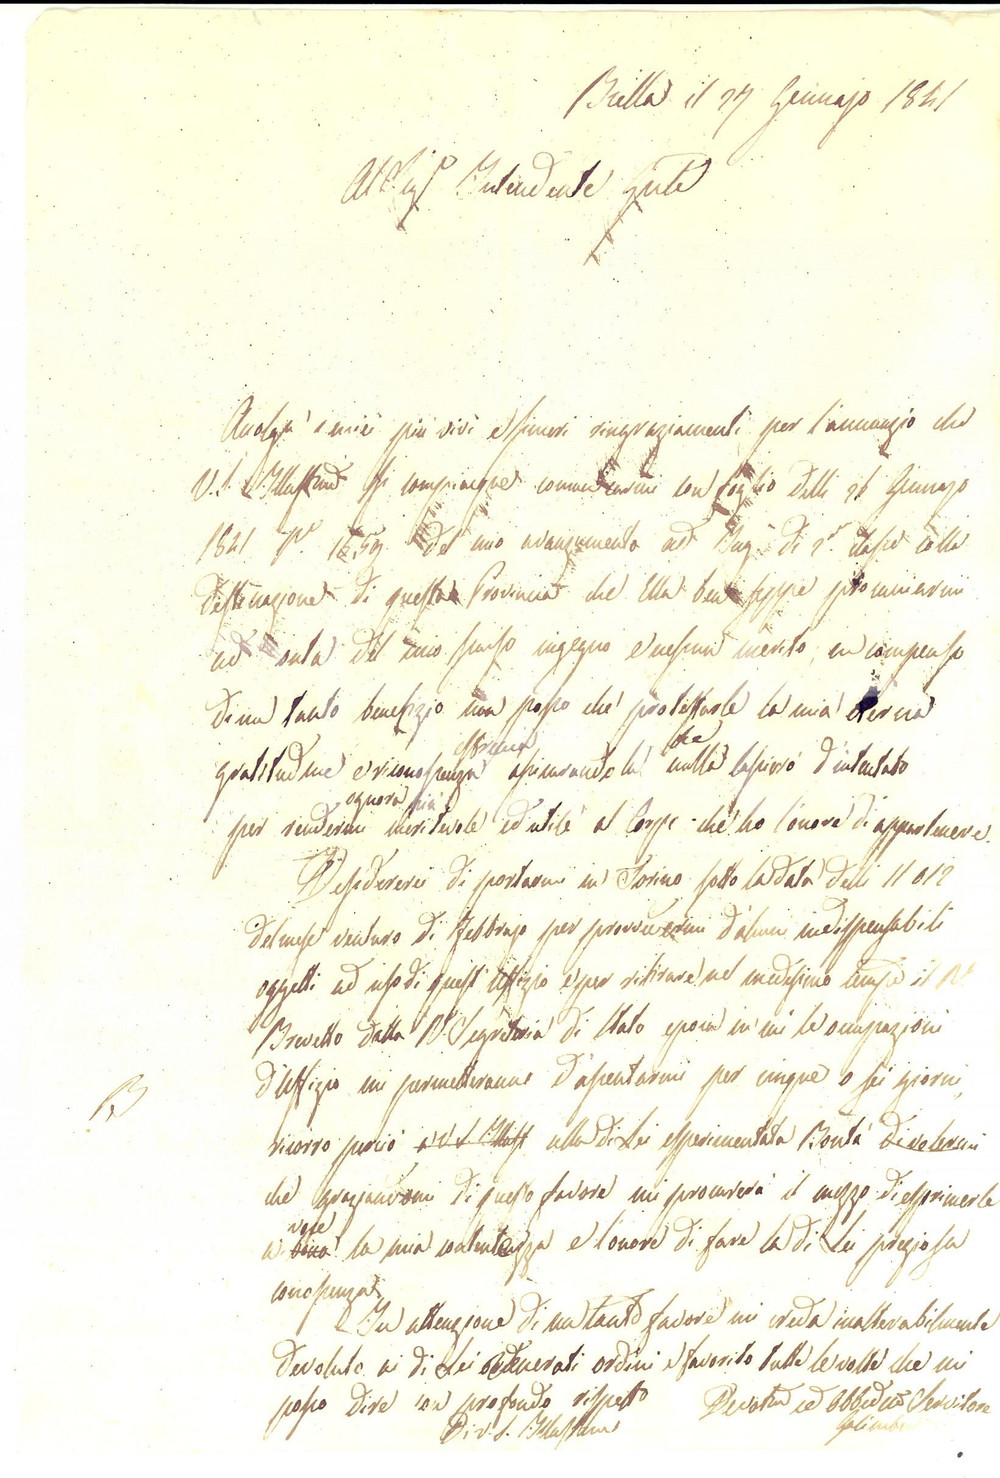 Biella il 27 Gennajo 1841
Al Sigr Intendente Gnle
i miei più vivi e sinceri ringraziamenti per l'annunzio che
V. S. Illustrma si compiacque comunicarmi con foglio delli 26 Gennajo
1841 N. 1659 del mio avanzamento ad Ing. di 2a classe colla
destinazione di questa Provincia che Ella ben seppe procurarmi
ad onta del mio scarso ingegno e nessun merito, in compenso
di un tanto benefizio non posso che protestarle la mia eterna
gratitudine e riconoscenza assicurandola che nulla lascierò d'intentato
per rendermi ognora più meritevole ed utile al Corpo che ho l'onore di appartenere.
Desidererei di portarmi in Torino sotto la data delli 11 o 12
del mese venturo di Febbrajo per provvedermi d'alcuni indispensabili
oggetti ad uso di quest'Uffizio e per ritirare nel medesimo tempo il Ro
Brevetto dalla Ra Segreteria di Stato epoca in cui le occupazioni
d'Uffizio mi permetteranno d'assentarmi per cinque o sei giorni,
ricorro perciò a V. S. Illust alla di Lei esperimentata Bontà di volermi
che graziandomi di questo favore mi procurerà il mezzo di esprimerle
a voce la mia contentezza e l'onore di fare la di Lei preziosa
conoscenza
In attenzione di un tanto favore mi creda inalterabilmente
devoluto ai di Lei venerati ordini e favorito tutte le volte che mi
posso dire con profondo rispetto
Di V. S. Illustrma
Devotmo ed Obbedmo Servitore